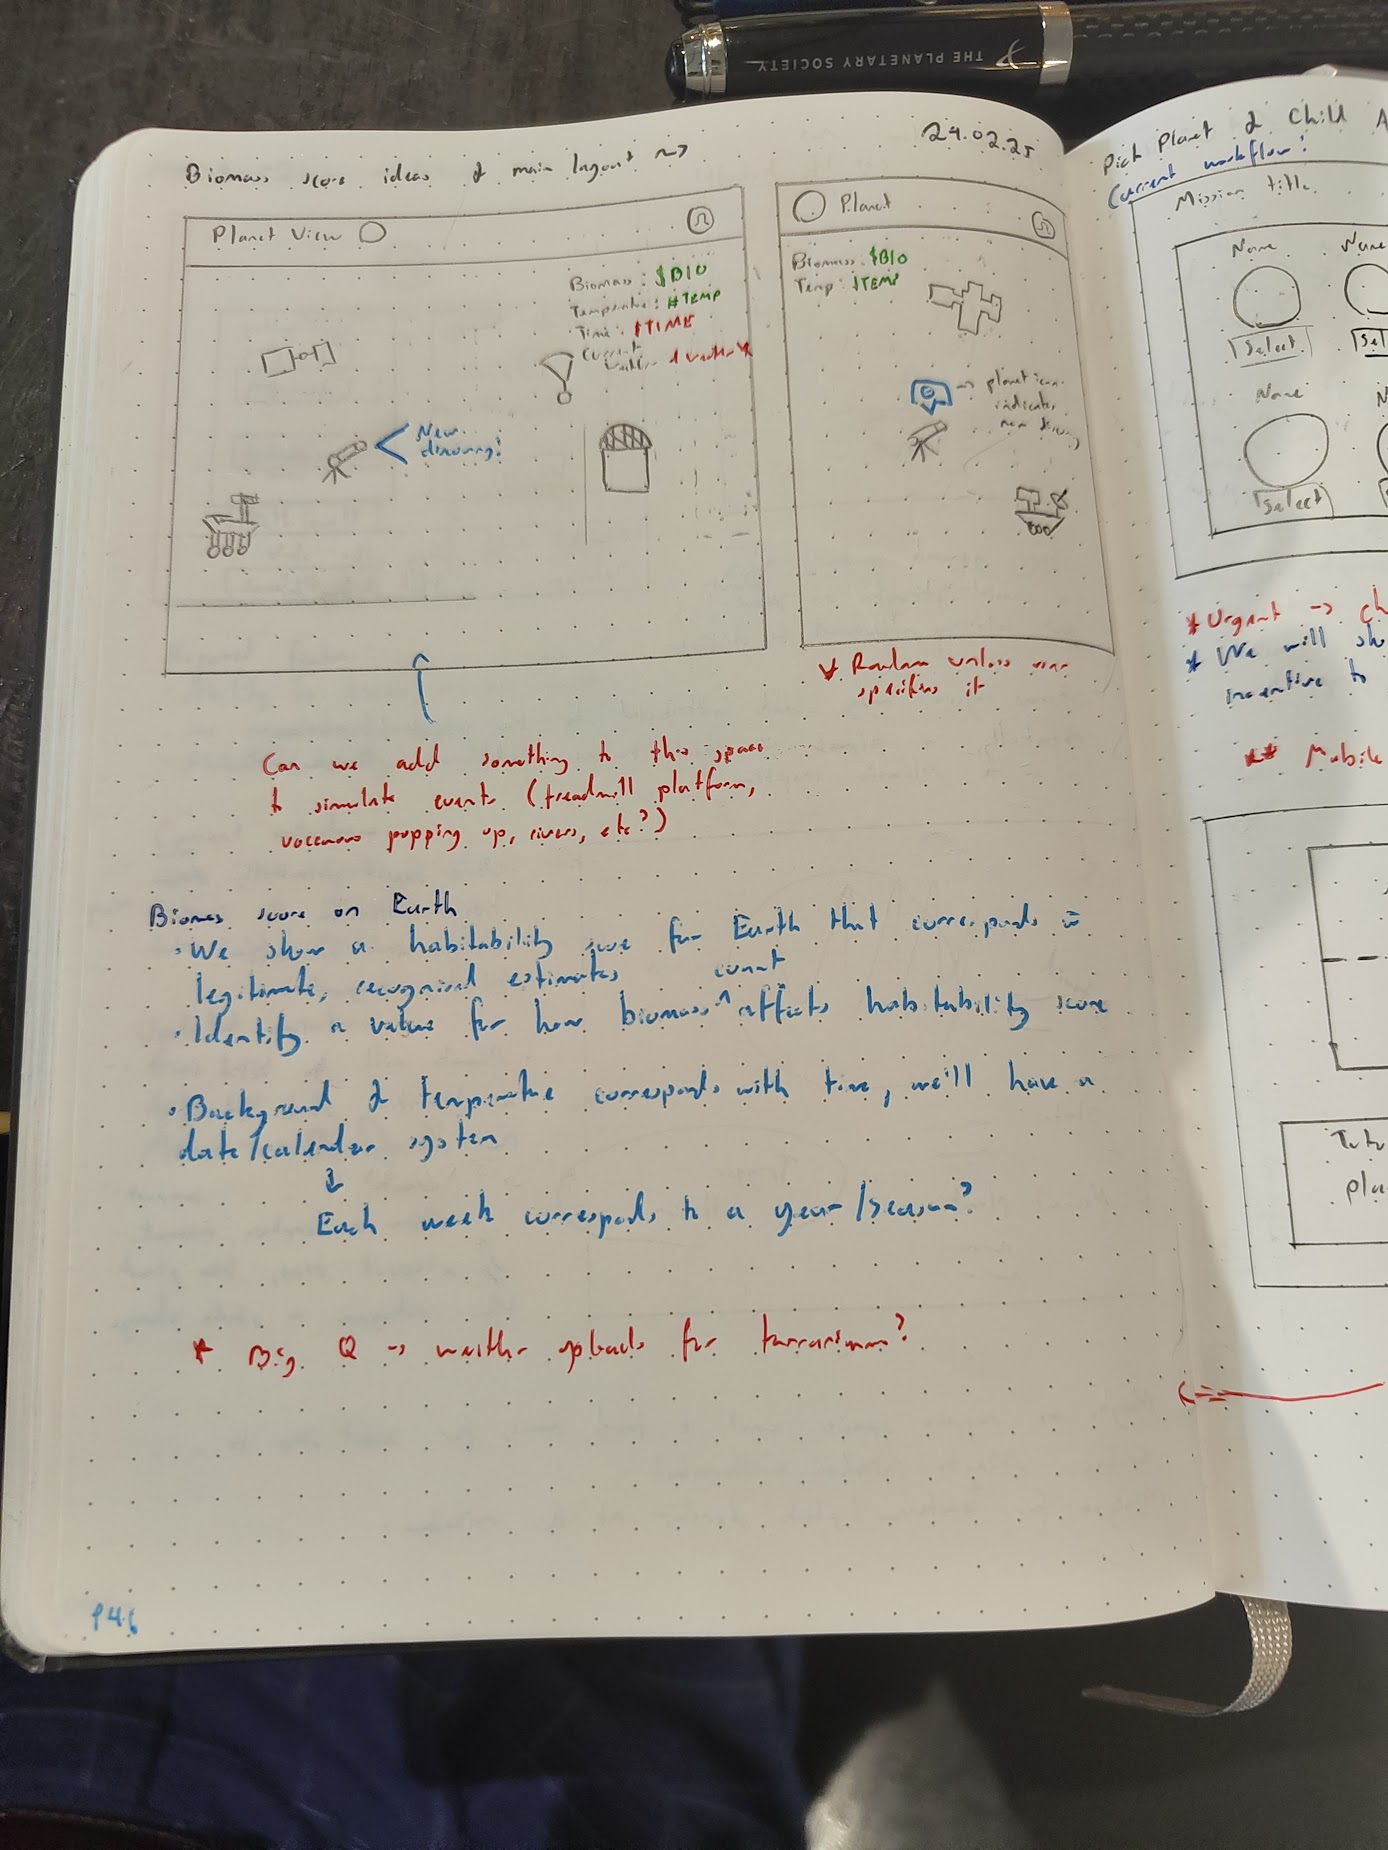 THE PLANETARY SOCIETY
24.02.25
Biomass score ideas & main layout ~>
Planet View
Biomass: $BIO
Temperature: #TEMP
Time: $TIME
Current
New
discovery!
Planet
Biomass: $BIO
Temp: $TEMP
-> planet icon
indicates
new discovery
* Random unless user
specifies it
Can we add something to the space
to simulate events (treadmill platform,
volcanoes popping up, rivers, etc?)
Biomass score on Earth
• We show a habitability score for Earth that corresponds to
legitimate, recognised estimates
count
• Identify a value for how biomass ^ affects habitability score
• Background & temperature corresponds with time, we'll have a
date/calendar system
↓
Each week corresponds to a year/season?
* Big Q -> weather uploads for terrarium?
P46
Pick Planet & Chill A
Current workflow:
Mission title
Name
Name
Select
Sel
Name
N
Select
* Urgent -> ch
* We will sho
incentive to
** Mobile
Tut
pla